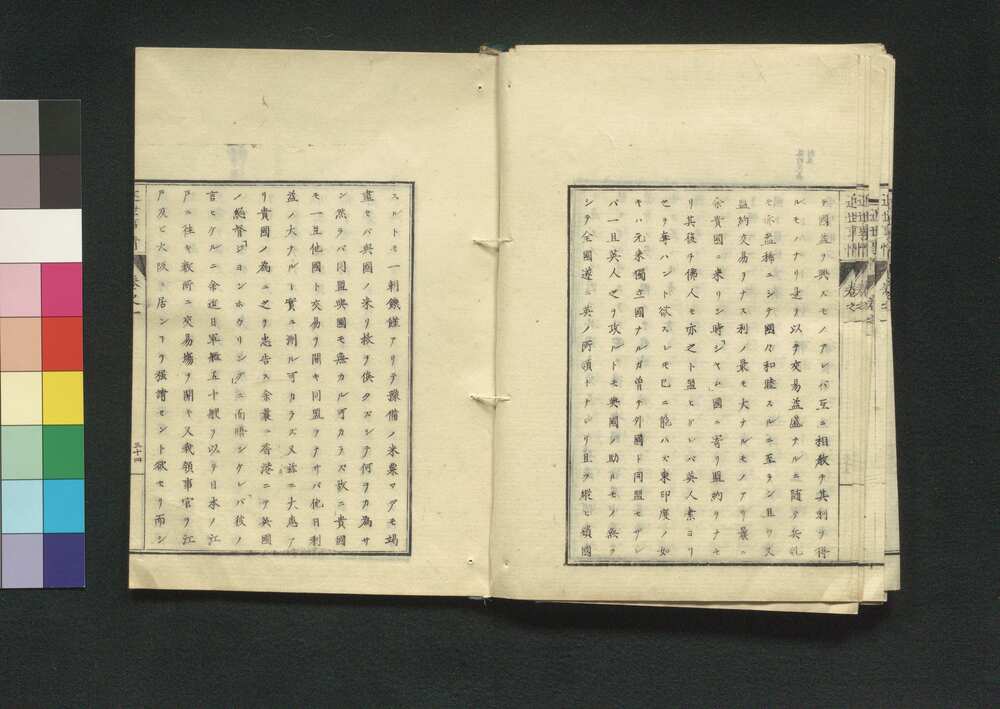 ヲ國益ヲ興スモノアレバ互ニ相救ヲ其利ヲ得
ルモハナリ是ヲ以テ交易益盛ナルニ隨ヲ兵乱
モ亦益稀ニシテ國々和睦スルニ至ラン且ツ又
盟約交易ヲナス利ノ最モ大ナルモノアリ曩ニ
余貴國ニ来リシ時シヤム國ニ寄リ盟約ヲナセ
リ其後チ佛人モ亦之ト盟ヒ
英人素ヨリ
セヲ奪ハント欲スレモ已ニ能ハス東印度ノ如
キハ元来獨立國ナルガ曽テ外國ト同盟セザレ
バ一旦英人之ヲ攻ルトモ與國ノ助ルモノ無ク
シテ全國遂ニ英ノ所領トナレリ且ヲ縦モ鎖國
スルトモ一朝饑饉アリテ豫備ノ米粟マデモ竭
盡セバ與國ノ来リ救ヲ俟タズシテ何ヲカ為サ
ン然ラバ同盟與國モ無カル可カラズ故ニ貴國
モ一且他國ト交易ヲ開キ同盟ヲナサバ他日利
益ノ大ナルト實ニ測ル可カラズ又茲ニ大患ア
リ貴國ノ為ニ之ヲ忠告ス余曩ニ香港ニテ英國
ノ総督ジヨンホカリングニ面晤シケレバ彼ノ
言ヒケルニ余近日軍艦五十艘ヲ以テ日本ノ江
戸ニ往キ数所ニ交易塲ヲ開キ又我領事官ヲ江
戸及ヒ大阪ニ居ンヿヲ强請セント欲セリ而シ
三十四
近世事情
巻之一